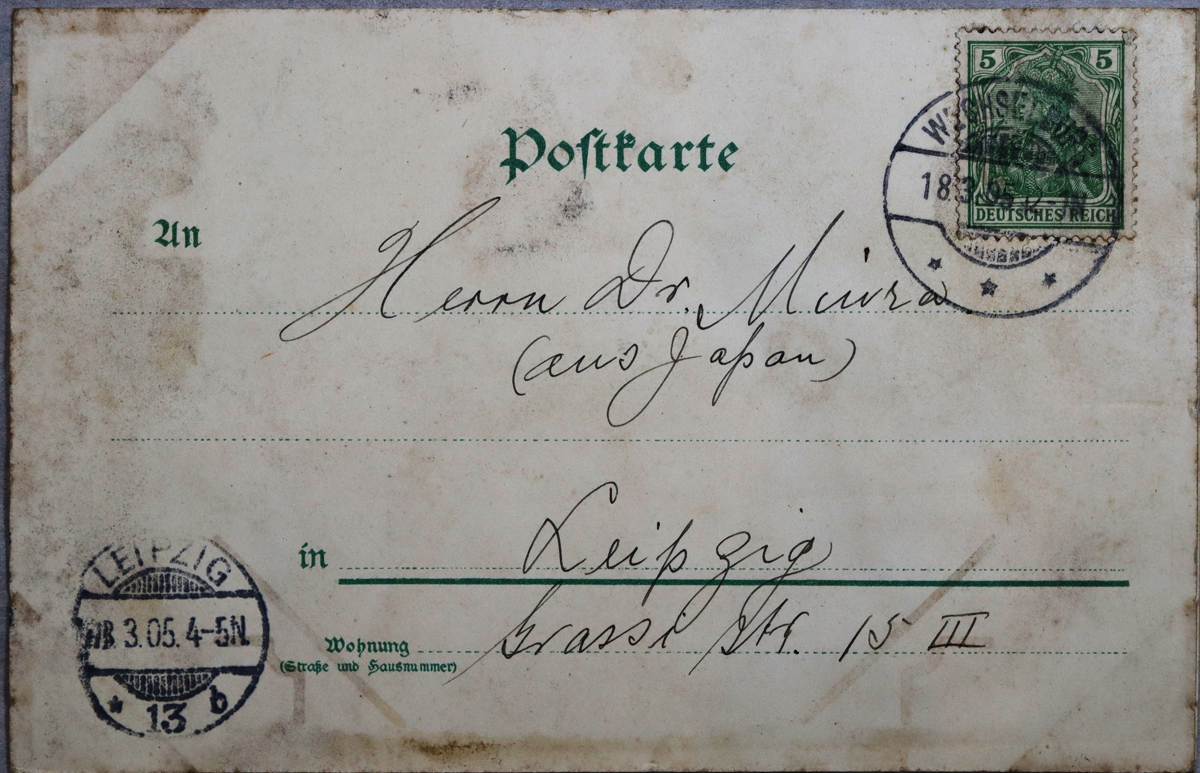 5 5
Postkarte
18.3.05.
DEUTSCHES REICH
An
Herrn Dr. Miura
(aus Japan)
in Leipzig
Wohnung Grassi Str. 15 III
(Straße und Hausnummer)
LEIPZIG
3.05. 4-5N.
* 13 b